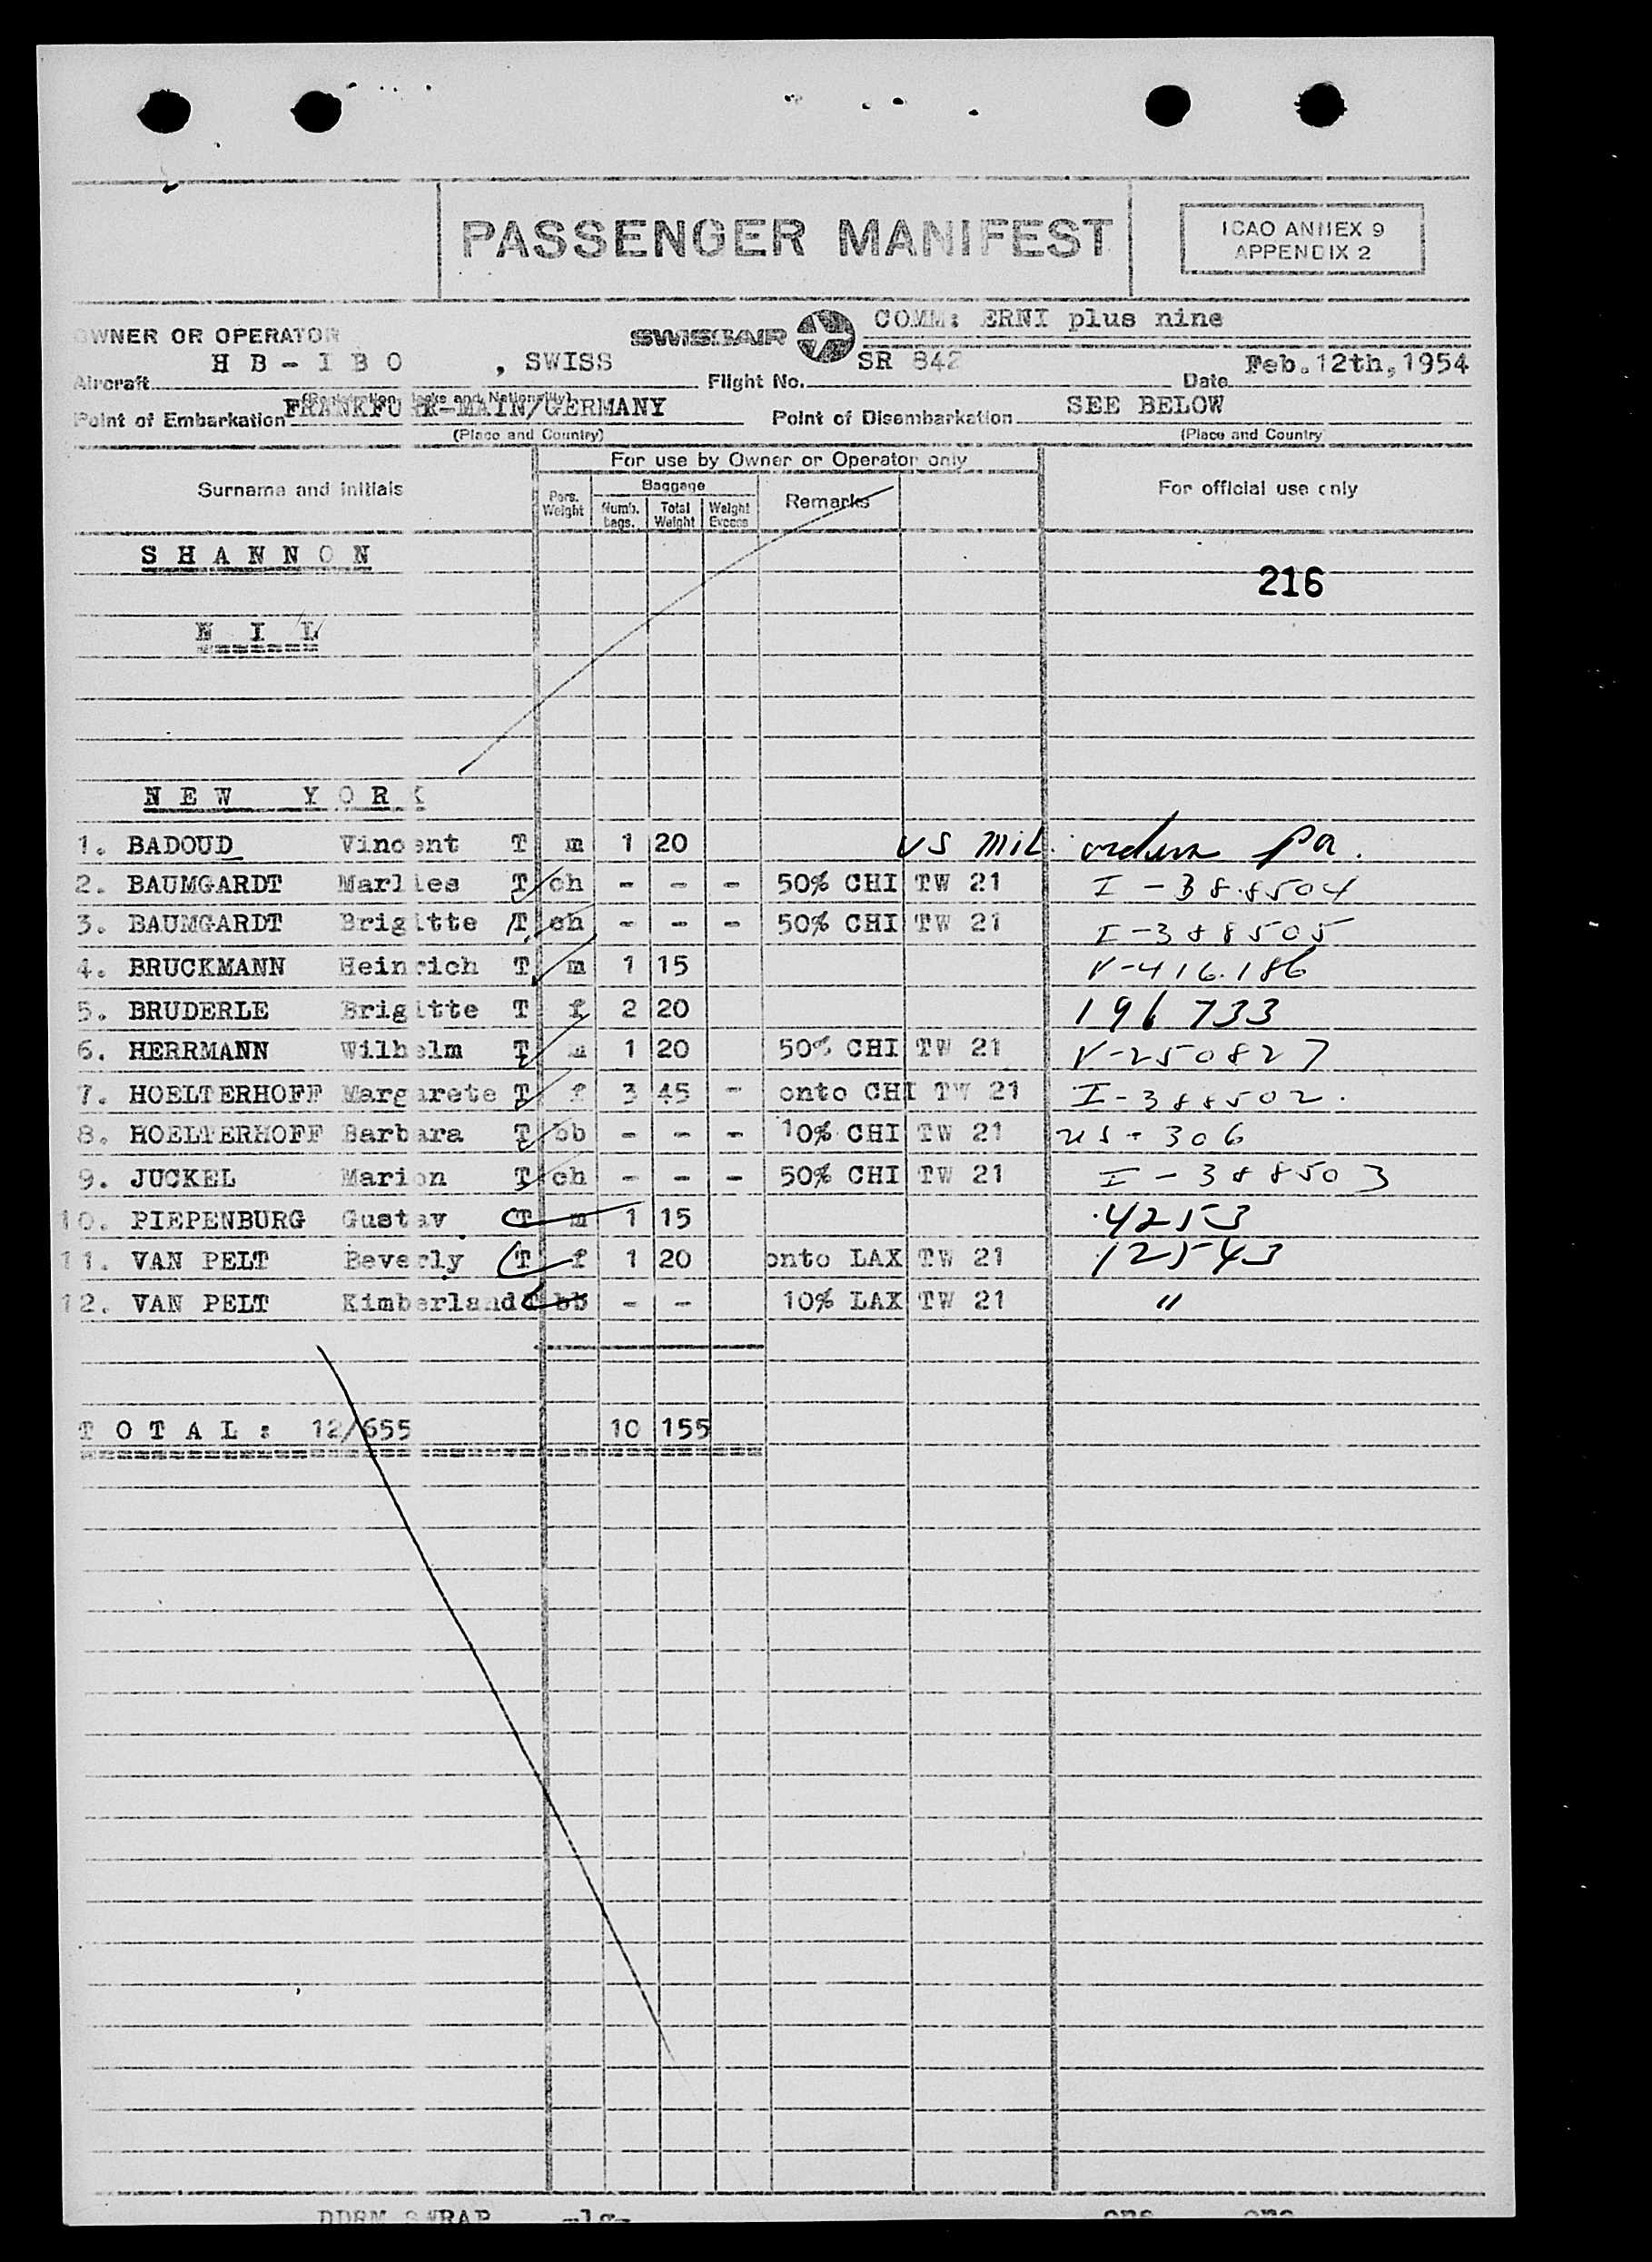 PASSENGER MANIFEST
ICAO ANNEX 9
APPENDIX 2
OWNER OR OPERATOR SWISSAIR COMM: ERNI plus nine
Aircraft H B - I B O , SWISS Flight No. SR 842 Date Feb.12th,1954
(Registration Marks and Nationality)
Point of Embarkation FRANKFURT-MAIN/GERMANY Point of Disembarkation SEE BELOW
(Place and Country) (Place and Country
For use by Owner or Operator only
Surname and initials Pers. Weight Baggage Remarks For official use only
Numb. bags. Total Weight Weight Excess
S H A N N O N
216
N I L
N E W Y O R K
1. BADOUD Vincent T m 1 20 US Mil. orders
2. BAUMGARDT Marlies T ch - - - 50% CHI TW 21 I-388504
3. BAUMGARDT Brigitte T ch - - - 50% CHI TW 21 I-388505
4. BRUCKMANN Heinrich T m 1 15 V-416.186
5. BRUDERLE Brigitte T f 2 20 196733
6. HERRMANN Wilhelm T m 1 20 50% CHI TW 21 V-250827
7. HOELTERHOFF Margarete T f 3 45 - onto CHI TW 21 I-388502.
8. HOELTERHOFF Barbara T bb - - - 10% CHI TW 21 US-306
9. JUCKEL Marion T ch - - - 50% CHI TW 21 I-388503
10. PIEPENBURG Gustav T m 1 15 4253
11. VAN PELT Beverly T f 1 20 onto LAX TW 21 12543
12. VAN PELT Kimberland T bb - - 10% LAX TW 21 "
T O T A L : 12/655 10 155